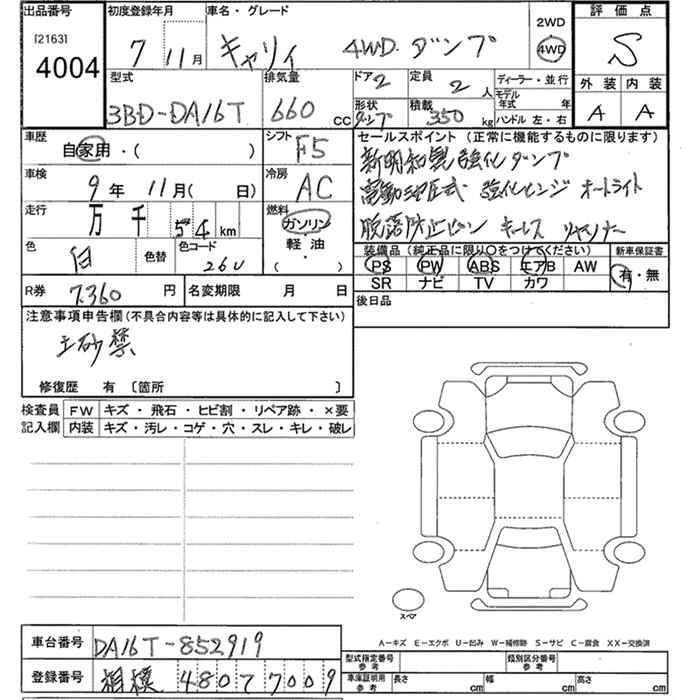 出品番号 初度登録年月 車名・グレード 2WD 評価点
[2163] 4004 7 11月 キャリィ 4WD ダンプ 4WD S
型式 排気量 ドア 2 定員 2人 ディーラー・並行 外装 内装
3BD-DA16T 660 CC 形状 ダンプ 積載 350 kg モデル年式 年 A A
ハンドル 左・右
車歴 シフト セールスポイント(正常に機能するものに限ります)
自家用・( ) F5 新明和製 強化ダンプ
車検 冷房 電動油圧式 強化ヒンジ オートライト
9年 11月( 日) AC 脱落防止ピン キーレス
走行 万 千 54 km 燃料 ガソリン 軽・油 ( ・ )
色 白 色替 色コード 26U
装備品(純正品に限り○をつけてください) 新車保証書
PS PW ABS エアB AW 有・無
SR ナビ TV カワ
R券 7,360 円 名変期限 月 日 後日品
注意事項申告欄(不具合内容等は具体的に記入して下さい)
土砂禁
修復歴 有 〔箇所 〕
検査員 FW キズ・飛石・ヒビ割・リペア跡・×要
記入欄 内装 キズ・汚レ・コゲ・穴・スレ・キレ・破レ
スペア
A-キズ E-エクボ U-凹み W-補修跡 S-サビ C-腐食 XX-交換済
車台番号 DA16T-852919
型式指定番号 参考 類別区分番号 参考
登録番号 相模 480 7009
車庫証明用 参考 長さ cm 幅 cm 高さ cm